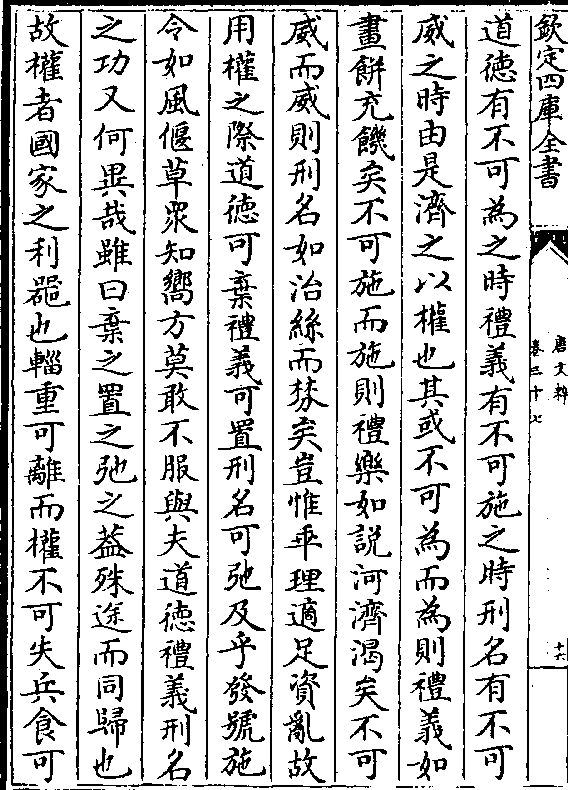 欽定四庫全書
唐文粹
卷三十七
十六
道徳有不可為之時禮義有不可施之時刑名有不可
威之時由是濟之以權也其或不可為而為則禮義如
畫餅充饑矣不可施而施則禮樂如説河濟渴矣不可
威而威則刑名如治絲而棼矣豈惟乖理適足資亂故
用權之際道徳可棄禮義可置刑名可弛及乎發號施
令如風偃草衆知嚮方莫敢不服與夫道徳禮義刑名
之功又何異哉雖曰棄之置之弛之葢殊途而同歸也
故權者國家之利噐也輜重可離而權不可失兵食可